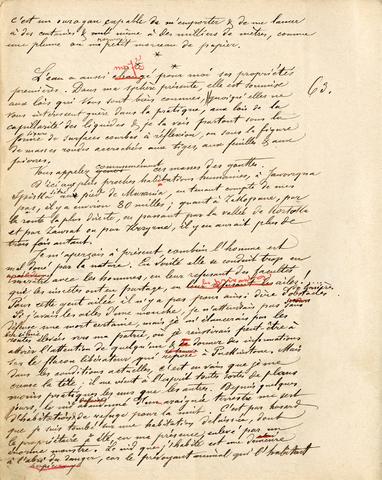 c'est un ouragan capable de m'emporter & de me lancer
à des centaines & même à des millions de mètres, comme
une plume ou un petit morceau de papier.
* * *
L'eau a aussi pour moi ses propriétés
premières. Dans ma sphère présente, elle est soumise
aux lois qui vous sont bien connues, quoiqu'elles ne
vous intéressent guère dans la pratique, aux lois de la
63.
capillarité des liquides & je la vois partout sous la
forme de surfaces courbes à réflexion, ou sous la figure
de masses rondes accrochées aux tiges, aux feuilles & aux
pierres.
Vous appelez communément ces masses des gouttes.
D'ici aux plus proches habitations humaines, à Jaworzyna
Spiska au pied de Murania, en tenant compte de mes
pas, il y a environ 80 milles; quant à Zakopane, par
la route la plus directe, en passant par la vallée de
et par Zawrat ou par Krzyżne, il y en aurait plus de
trois fois autant.
Je m'aperçois à présent combien l'homme est
mal doué par la nature. En vérité elle se conduit trop en
avec les hommes, en leur refusant des facultés
que des insectes ont en partage, en les privant des ailes!
Pour cette gent ailée il n'y a pas pour ainsi dire d'obstacles.
Si j'avais les ailes d'une mouche, je n'attendrais pas sans
défense une mort certaine, mais je m'élancerais par les
routes élevées vers ma patrie, où je réussirais peut-être à
attirer l'attention de quelqu'un & à donner des informations
sur le flacon libérateur qui repose à Mais
dans les conditions actuelles, c'est en vain que je me
creuse la tête; il me vient à l'esprit toute sorte de plans
moins pratiques les uns que les autres. Depuis quelques
jours, le nid d'une araignée terrestre me sert
d'habitation & de refuge pour la nuit. C'est par hasard
que je suis tombé sur une habitation délaissée, dont
le propriétaire a été, en ma présence, enlevé par un
énorme monstre. Le nid que j'habite est
à l'abri du danger, car le prévoyant animal qui l'habitait